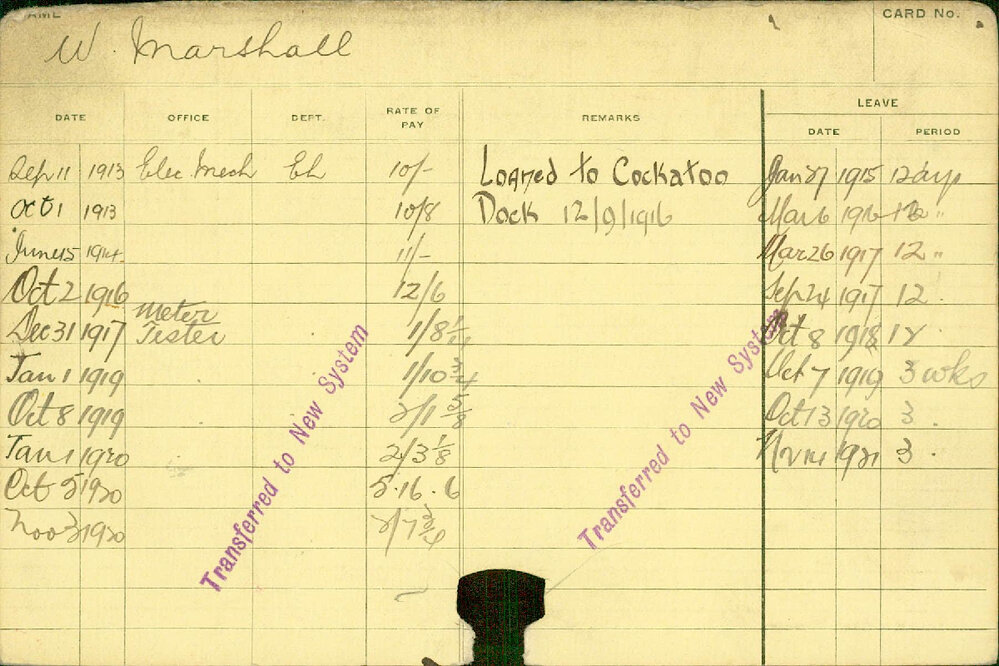 NAME CARD No.
W. Marshall
LEAVE
DATE OFFICE DEPT. RATE OF PAY REMARKS DATE PERIOD
Sep 11 1913 Elec. Mech El 10/- Loaned to Cockatoo Jan 27 1915 12 days
Oct 1 1913 10/8 Dock 12/9/1916 Mar 6 1916 12 "
June 15 1914 11/- Mar 26 1917 12 "
Oct 2 1916 12/6 Sep 24 1917 12
Meter
Dec 31 1917 Tester 1/8 Oct 8 1918 12
Jan 1 1919 1/10 3/4 Oct 7 1919 3 wks
Oct 8 1919 2/1 5/8 Oct 13 1920 3
Jan 1 1920 2/3 1/8 Nov 1921 3
Oct 5 1920 5.16.6
Nov 3 1920 2/7 3/4
Transferred to New System
Transferred to New System